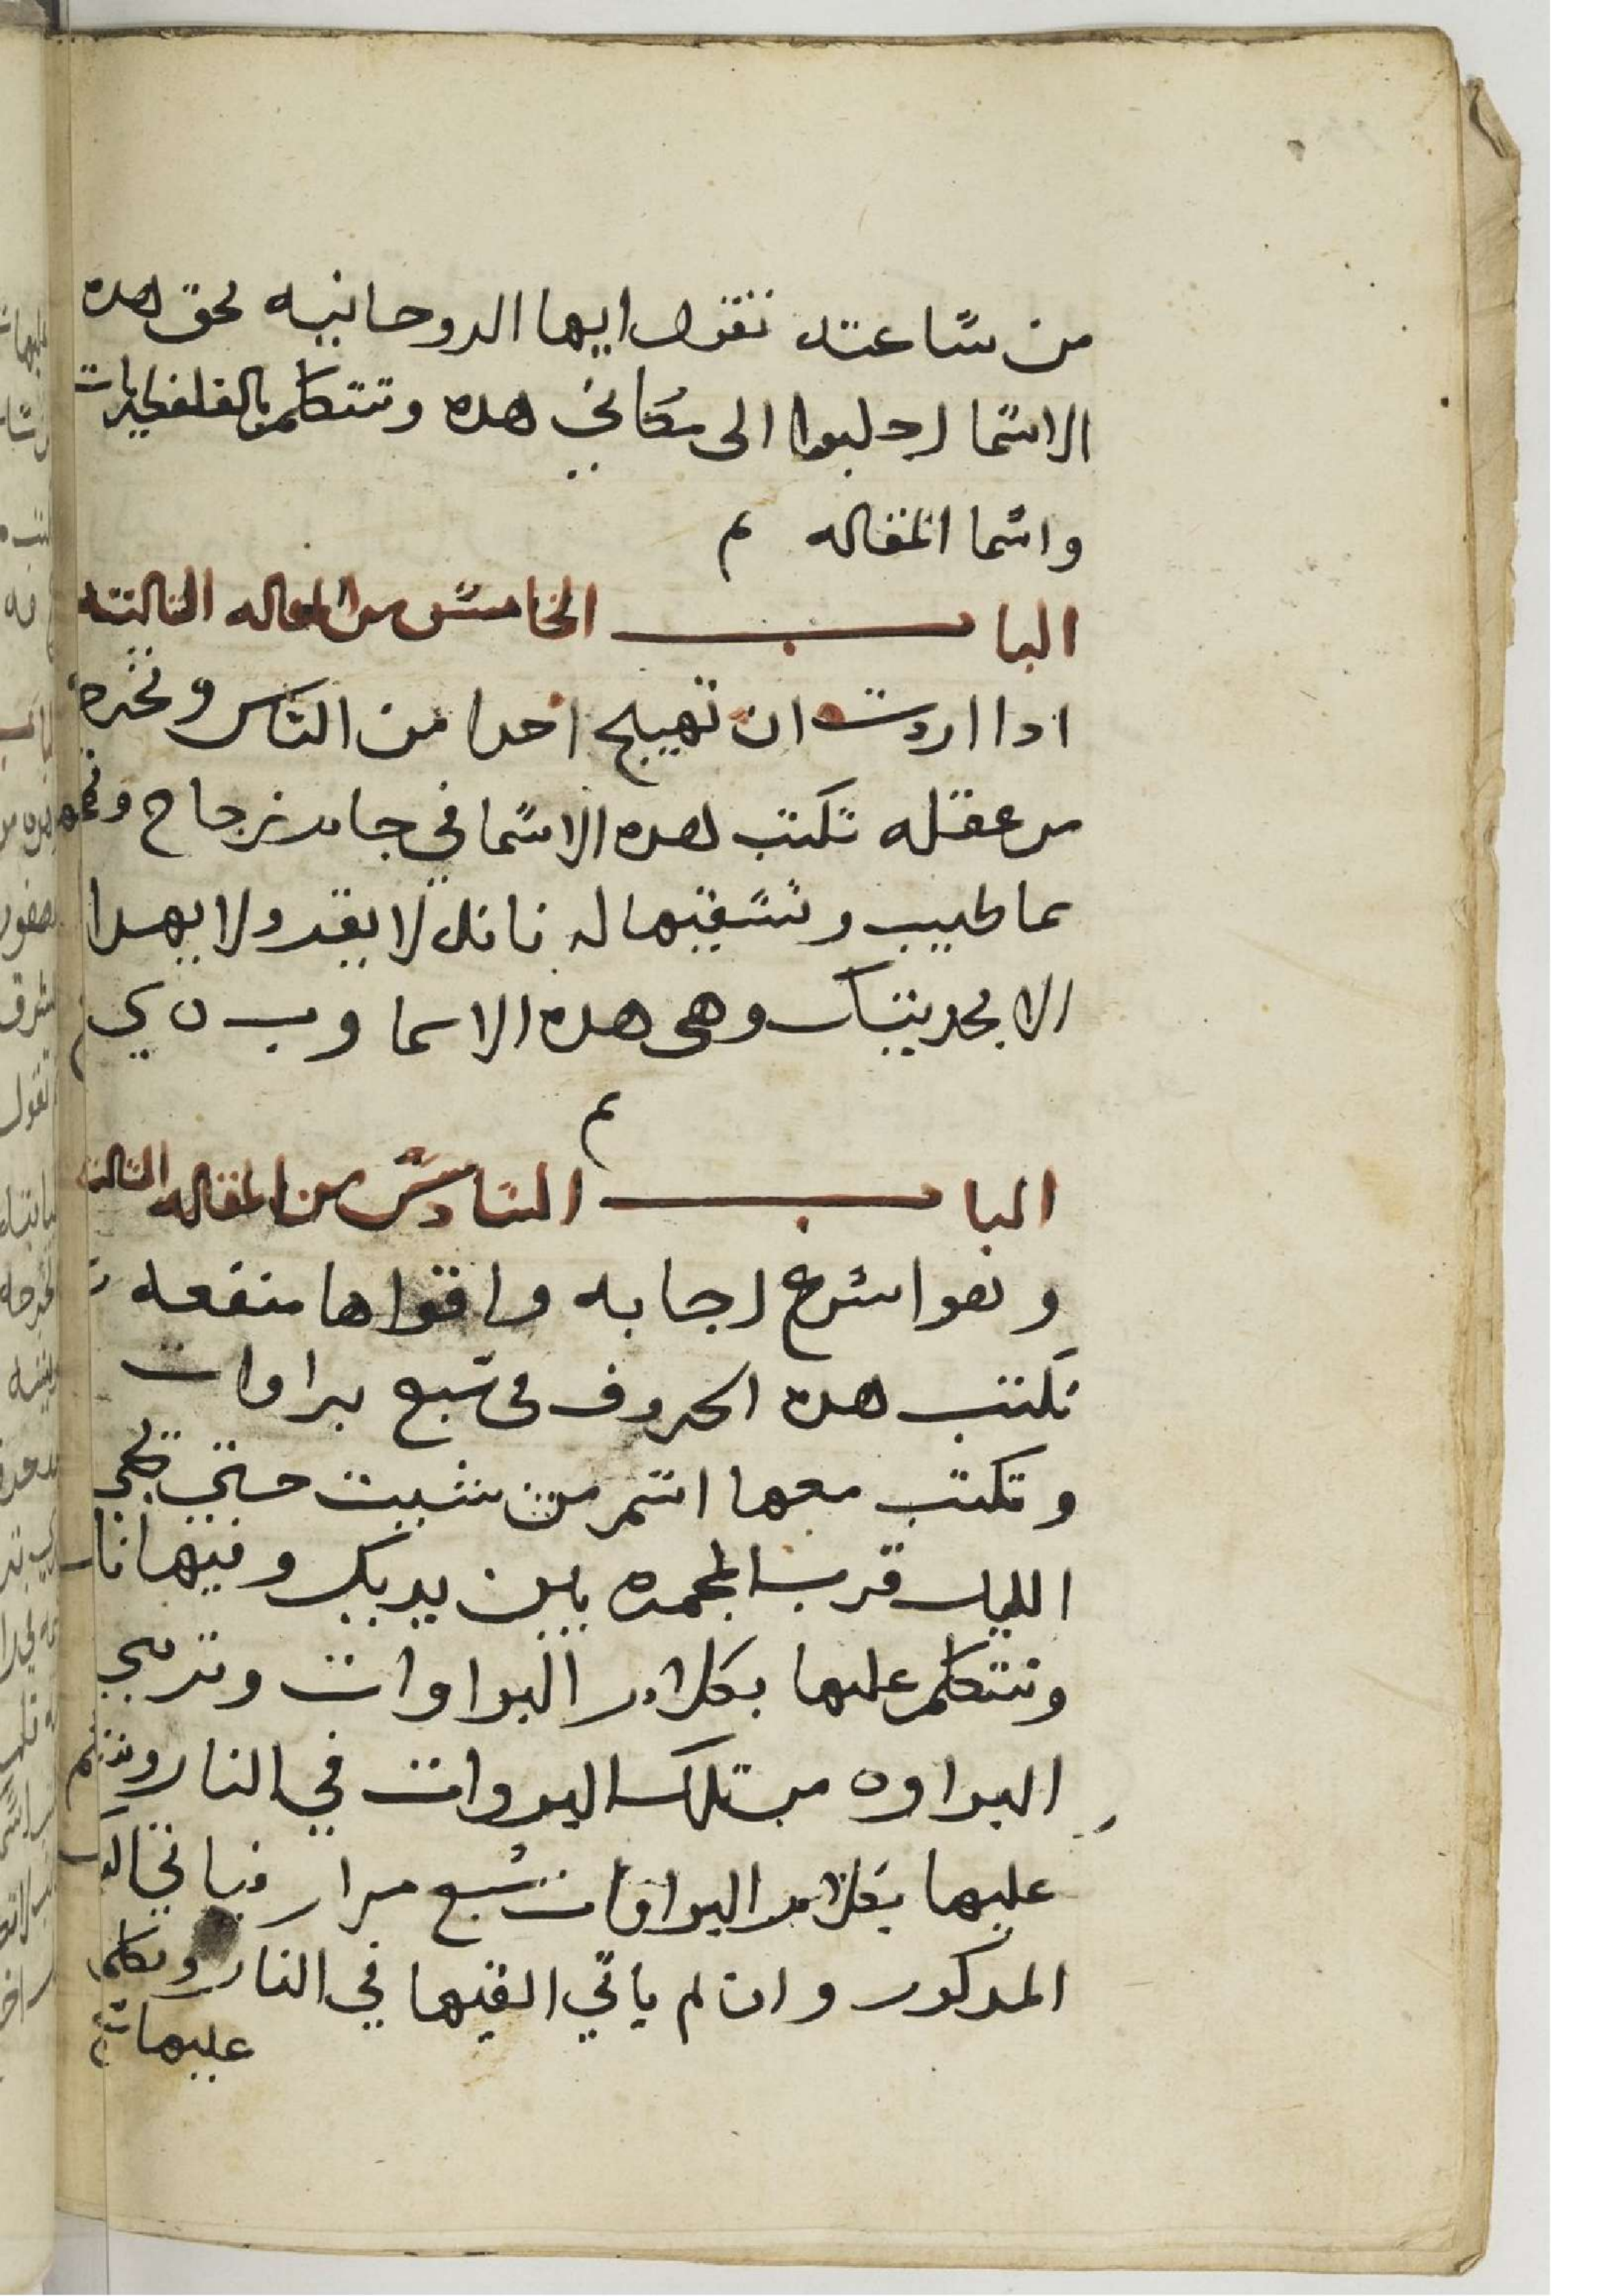 من ساعته تقول ايها الروحانيه بحق هده
الاسما اجلبوا الى مكاني هده وتتكلم بالقلفطيريات
واسما المقاله م
الباب الخامس من المقاله التالته
ادا اردت ان تهيج احدا من الناس وتخرجه
من عقله تكتب هده الاسما في جام زجاج
بما طيب وتسقيها له فانه لا يقدر ولا يهدا
الا بحديتك وهى هده الاسما و ب ن ي
م
الباب السادس من المقاله التالته
وهوا اسرع اجابه واقواها منفعه
تكتب هده الحروف في سبع براوات
وتكتب معها اسم من شيت حتي يجي
الليل قرب المجمره بين يديك وفيها نار
وتتكلم عليها بكلام البراوات وترمي
البراوه من تلك البروات في النار
عليها بكلام البراوات سبع مرار فياتي
المدكور وان لم ياتي القيها في النار وتكلم
عليها سبع